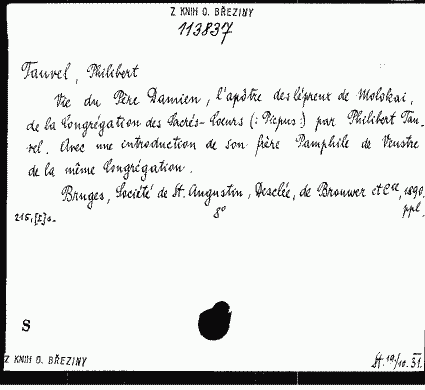 Z KNIH O. BŘEZINY
113837
Tauvel, Philibert
Vie du Père Damien, l'apôtre des lépreux de Molokai,
de la Congrégation des Sacrés-Coeurs (: Picpus :) par Philibert Tau-
vel. Avec une introduction de son frère Pamphile de Veustre
de la même Congrégation.
Bruges, Société de St. Augustin, Desclée, de Brouwer et Cie, 1890.
216, [I] s. 8° ppl.
S
Z KNIH O. BŘEZINY St. 19/10.31.